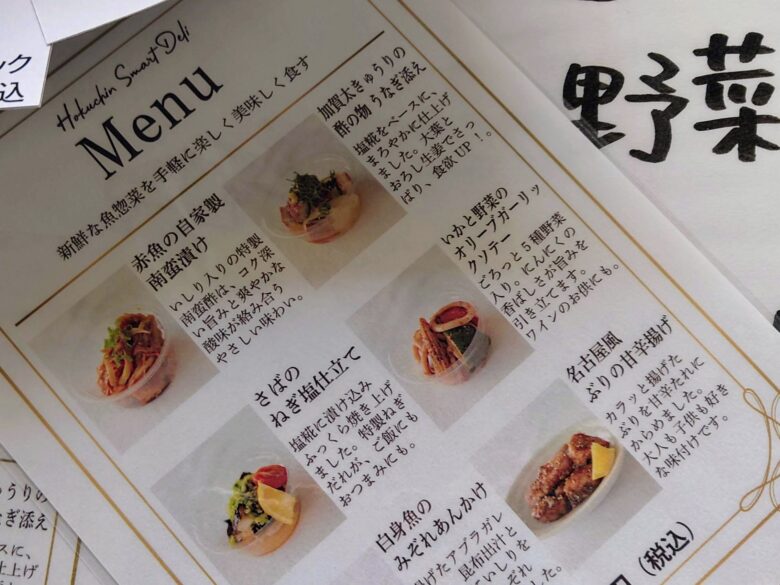 Hokuchin Smart Deli
Menu
新鮮な魚惣菜を手軽に楽しく美味しく食す
赤魚の自家製
南蛮漬け
いしり入りの特製
南蛮酢は、コク深
い旨みと爽やかな
酸味が絡み合う
やさしい味わい。
加賀太きゅうりの
酢の物 うなぎ添え
塩糀をベースに、
まろやかに仕上げ
ました。大葉と
おろし生姜でさっ
ぱり、食欲UP！。
さばの
ねぎ塩仕立て
塩糀に漬け込み
ふっくら焼き上げ
ました。特製ねぎ
だれが、ご飯にも
おつまみにも。
いかと野菜の
オリーブガーリッ
クソテー
ごろっと5種野菜
入り。にんにくの
香ばしさが旨みを
引き立てます。
ワインのお供にも。
白身魚の
みぞれあんかけ
揚げたアブラガレ
昆布出汁と
いしりを
名古屋風
ぶりの甘辛揚げ
カラッと揚げた
ぶりを甘辛たれに
からめました。
大人も子供も好き
な味付けです。
（税込）
野菜
ック
込
ゅうりの
なぎ添え
スに、
仕上げ